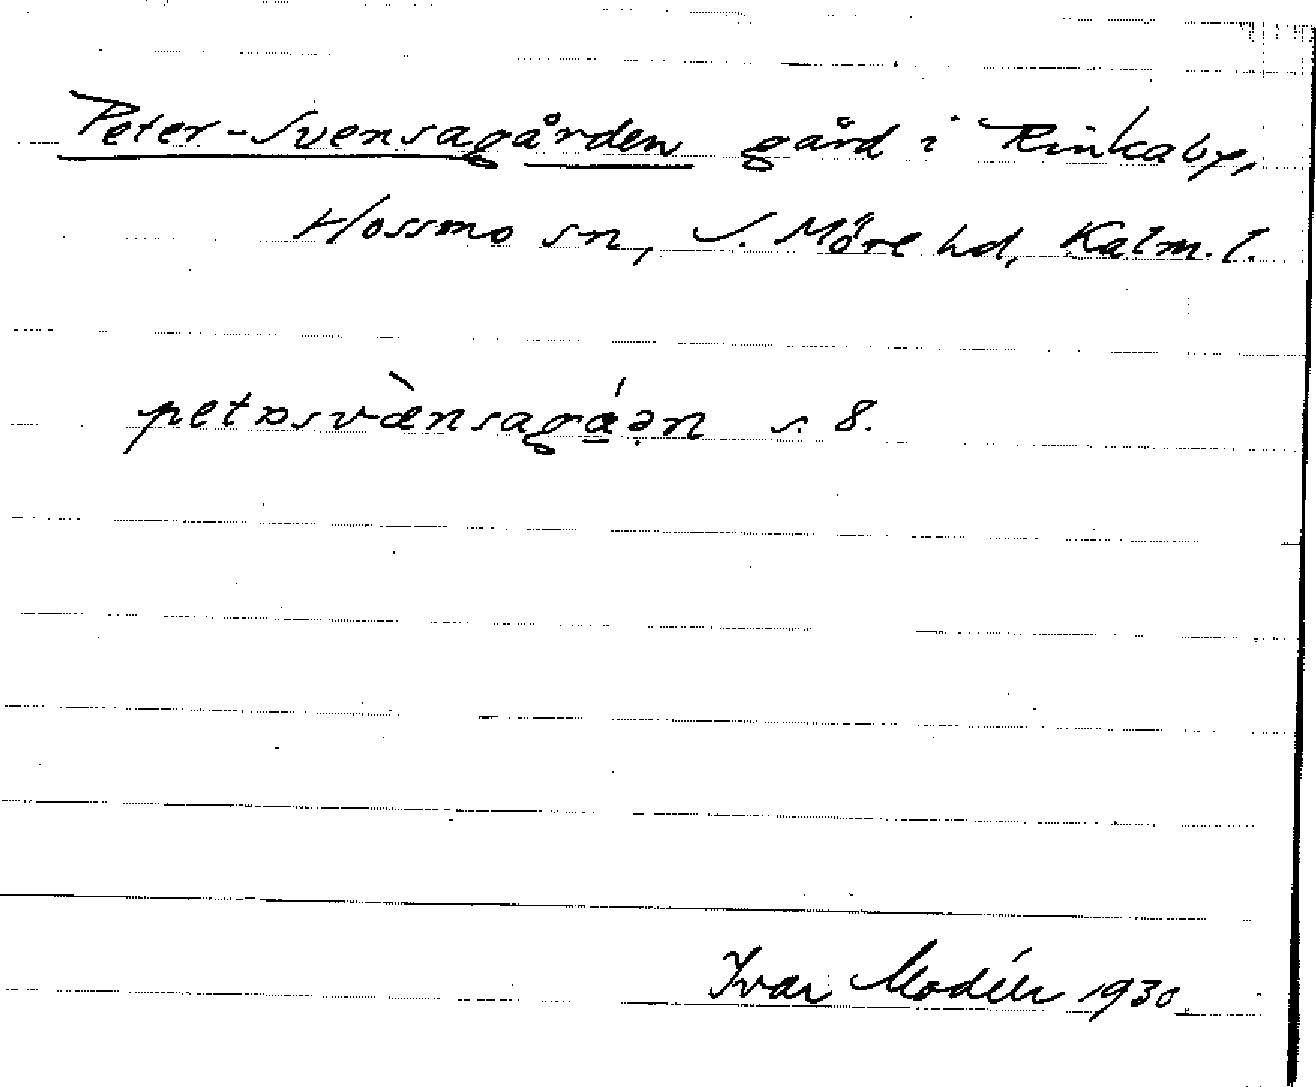 Peter-Svensagården gård i Rinkaby,
Hossmo sn, S. Möre hd, Kalm. l.
petɒsvæ̀nsagá̱ən s. 8.
Ivar Modéer 1930